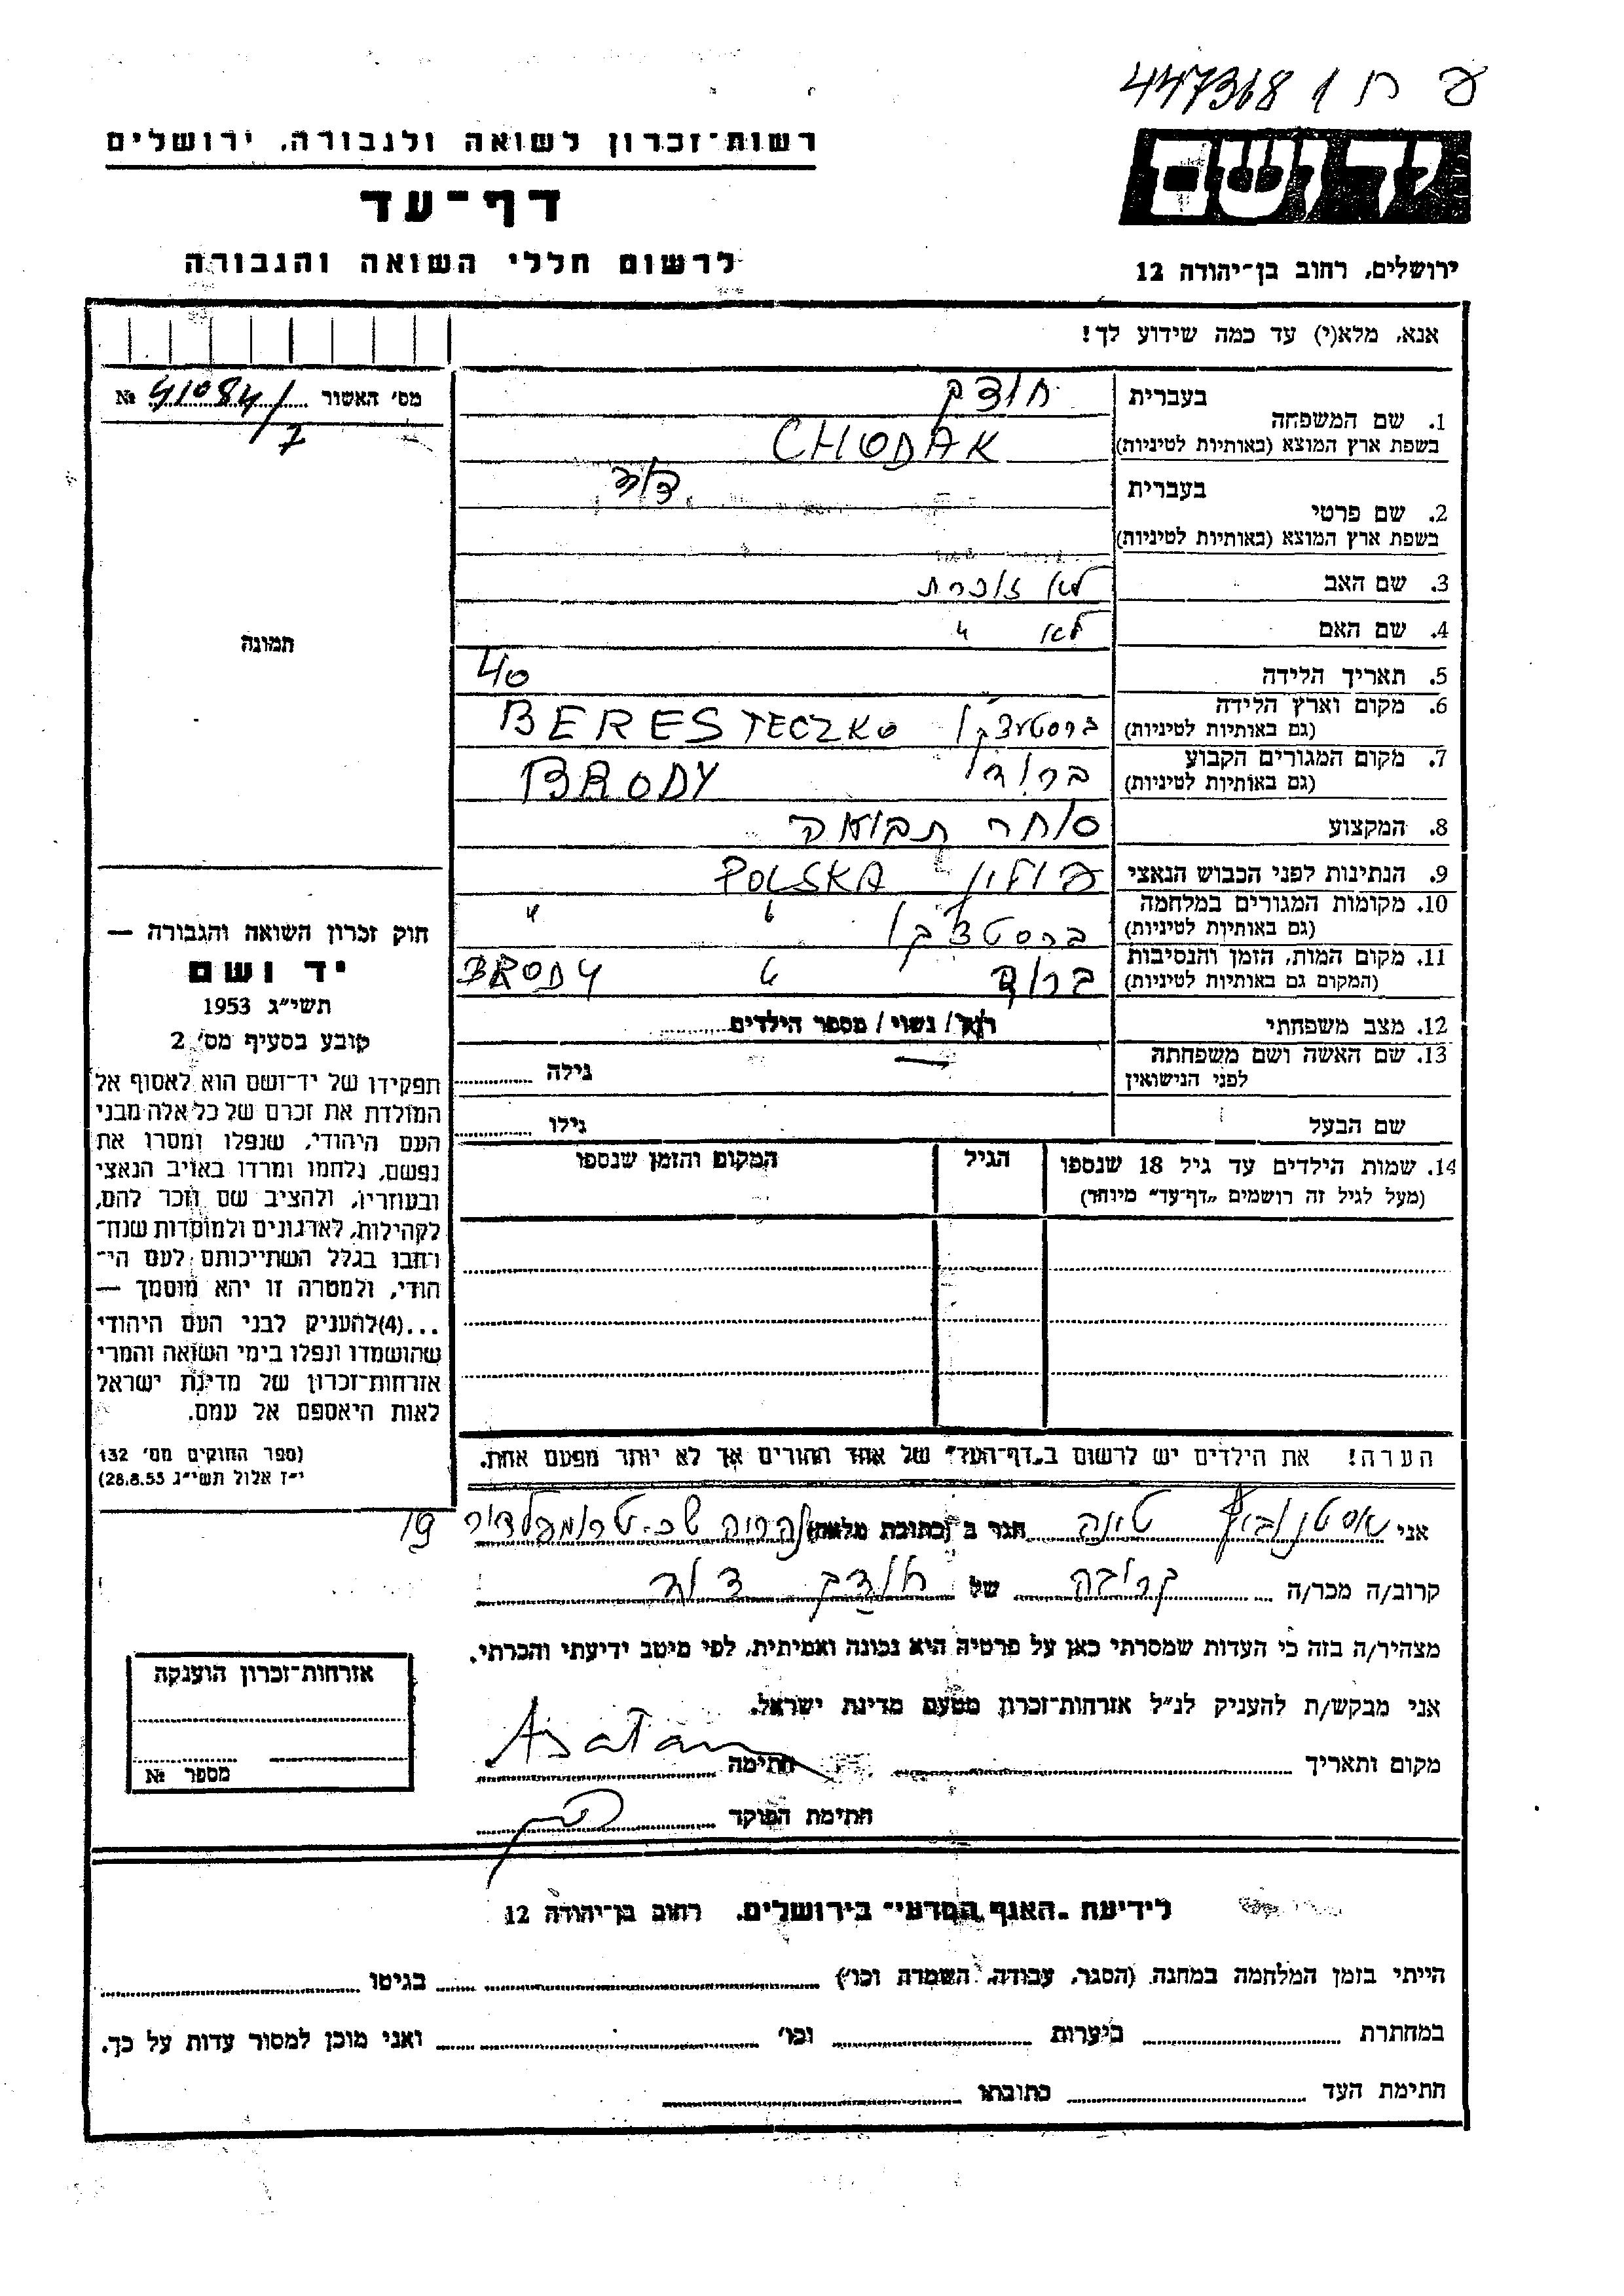 ע ח 1 447368
רשות־זכרון לשואה ולגבורה, ירושלים
דף־עד
לרשום חללי השואה והגבורה
יד ושם
ירושלים, רחוב בן־יהודה 12
אנא, מלא(י) עד כמה שידוע לך!
מס' האשור 41084/7 №
תמונה
1. שם המשפחה
בעברית חודק
בשפת ארץ המוצא (באותיות לטיניות) CHODAK
2. שם פרטי
בעברית דוד
בשפת ארץ המוצא (באותיות לטיניות)
3. שם האב לא זוכרת
4. שם האם לא "
5. תאריך הלידה 40
6. מקום וארץ הלידה
(גם באותיות לטיניות) ברסטצקו BERESTECZKO
7. מקום המגורים הקבוע
(גם באותיות לטיניות) ברודי BRODY
8. המקצוע סוחר תבואה
9. הנתינות לפני הכבוש הנאצי פולין POLSKA
10. מקומות המגורים במלחמה
(גם באותיות לטיניות) ברסטצקו " "
11. מקום המות, הזמן והנסיבות
(המקום גם באותיות לטיניות) ברוד BRODY
12. מצב משפחתי רוק / נשוי / מספר הילדים
13. שם האשה ושם משפחתה
לפני הנישואין גילה
שם הבעל גילו
14. שמות הילדים עד גיל 18 שנספו הגיל המקום והזמן שנספו
(מעל לגיל זה רושמים "דף־עד" מיוחד)
חוק זכרון השואה והגבורה —
יד ושם
תשי"ג 1953
קובע בסעיף מס' 2
תפקידו של יד־ושם הוא לאסוף אל
המולדת את זכרם של כל אלה מבני
העם היהודי, שנפלו ומסרו את
נפשם, נלחמו ומרדו באויב הנאצי
ובעוזריו, ולהציב שם וזכר להם,
לקהילות, לארגונים ולמוסדות שנח־
רבו בגלל השתייכותם לעם הי־
הודי, ולמטרה זו יהא מוסמך —
...(4)להעניק לבני העם היהודי
שהושמדו ונפלו בימי השואה והמרי
אזרחות־זכרון של מדינת ישראל
לאות היאספם אל עמם.
(ספר החוקים מס' 132
י"ז אלול תשי"ג 28.8.53)
הערה! את הילדים יש לרשום ב"דף־העד" של אחד ההורים אך לא יותר מפעם אחת.
אני טובה הגר ב (כתובת מלאה) נהריה שכ. טרומפלדור 19
קרוב/ה מכר/ה קרובה של חודק דוד
מצהיר/ה בזה כי העדות שמסרתי כאן על פרטיה היא נכונה ואמיתית, לפי מיטב ידיעתי והכרתי.
אני מבקש/ת להעניק לנ"ל אזרחות־זכרון מטעם מדינת ישראל.
מקום ותאריך חתימה
חתימת הפוקד
אזרחות־זכרון הוענקה
מספר №
לידיעת "האגף המדעי" בירושלים, רחוב בן־יהודה 12
הייתי בזמן המלחמה במחנה (הסגר, עבודה, השמדה וכו') בגיטו
במחתרת ביערות וכו' ואני מוכן למסור עדות על כך.
חתימת העד כתובתו